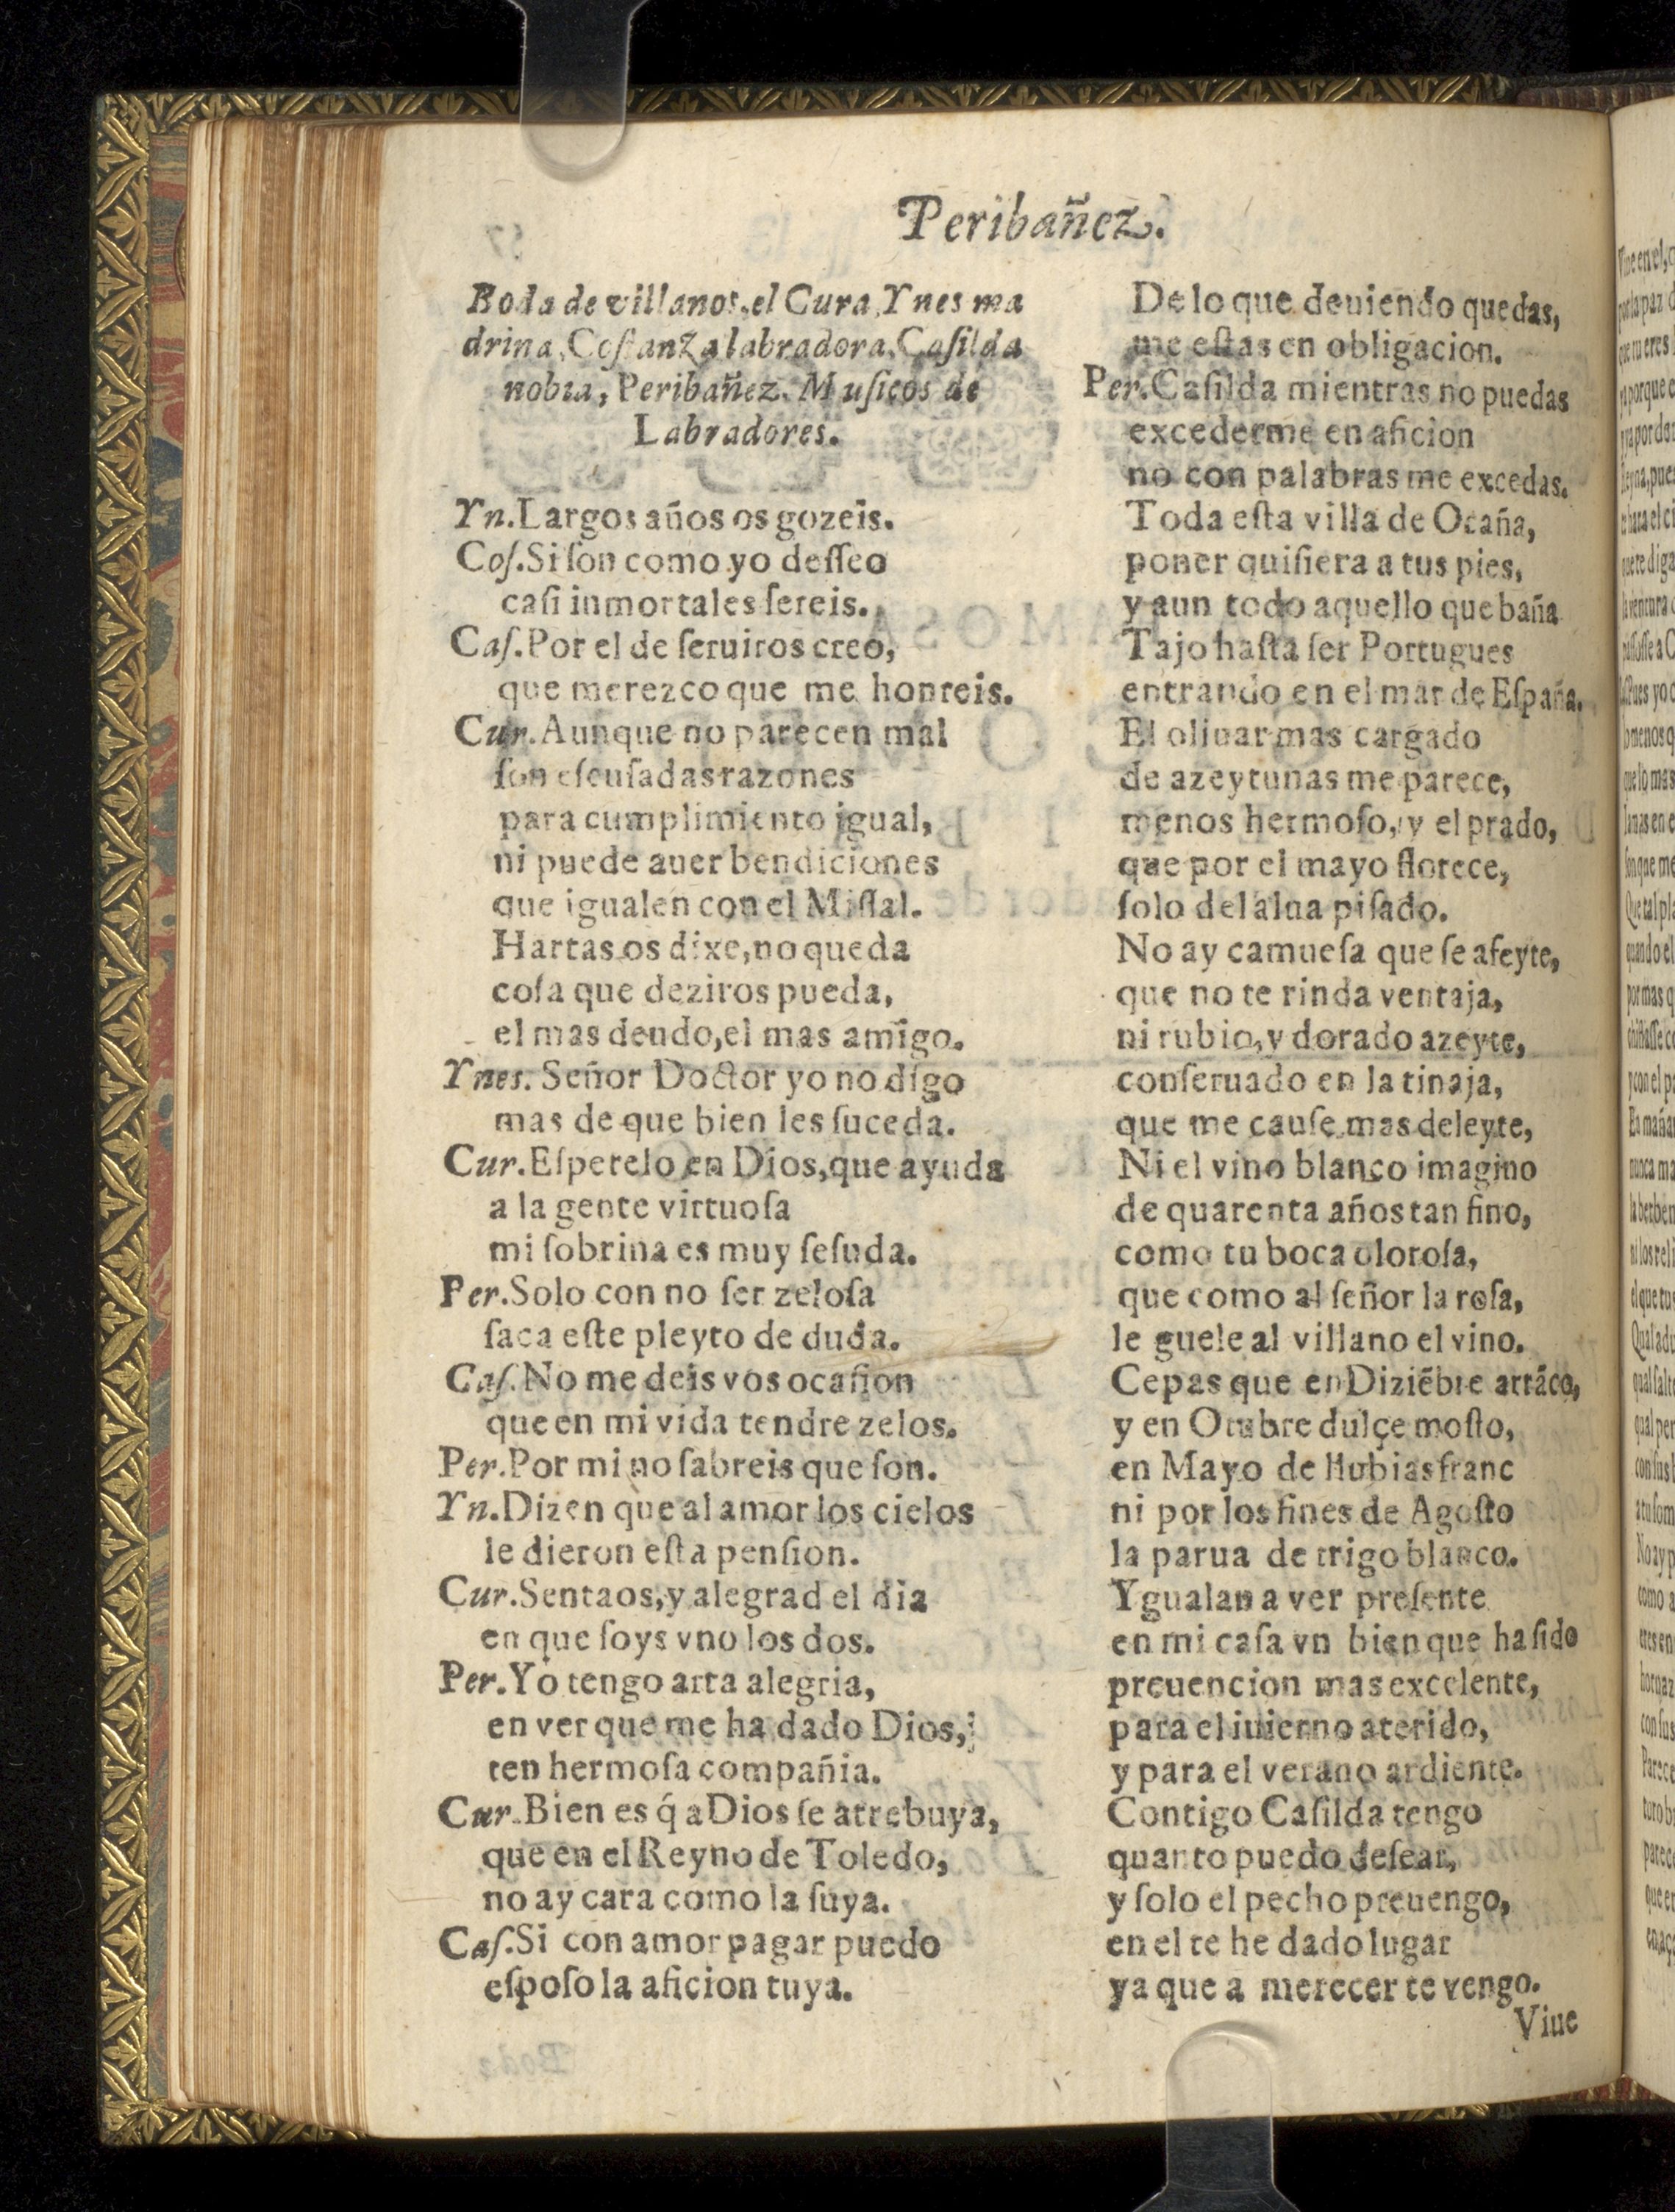 Peribañez.
Boda de villanos, el Cura, Ynes ma
drina, Costanza labradora, Casilda
nobia, Peribañez. Musicos de
Labradores.
Yn. Largos años os gozeis.
Cos. Si son como yo desseo
casi inmortales sereis.
Cas. Por el de seruiros creo,
que merezco que me honreis.
Cur. Aunque no parecen mal
son escusadas razones
para cumplimiento igual,
ni puede auer bendiciones
que igualen con el Missal.
Hartas os dixe, no queda
cosa que deziros pueda,
el mas deudo, el mas amigo.
Ynes. Señor Doctor yo no digo
mas de que bien les suceda.
Cur. Esperelo en Dios, que ayuda
a la gente virtuosa
mi sobrina es muy sesuda.
Per. Solo con no ser zelosa
saca este pleyto de duda.
Cas. No me deis vos ocasion
que en mi vida tendre zelos.
Per. Por mi no sabreis que son.
Yn. Dizen que al amor los cielos
le dieron esta pension.
Cur. Sentaos, y alegrad el dia
en que soys vno los dos.
Per. Yo tengo arta alegria,
en ver que me ha dado Dios,
ten hermosa compañia.
Cur. Bien es q́ a Dios se atrebuya,
que en el Reyno de Toledo,
no ay cara como la suya.
Cas. Si con amor pagar puedo
esposo la aficion tuya.
De lo que deuiendo quedas,
me estas en obligacion.
Per. Casilda mientras no puedas
excederme en aficion
no con palabras me excedas.
Toda esta villa de Ocaña,
poner quisiera a tus pies,
y aun todo aquello que baña
Tajo hasta ser Portugues
entrando en el mar de España.
El oliuar mas cargado
de azeytunas me parece,
menos hermoso, y el prado,
que por el mayo florece,
solo del alua pisado.
No ay camuesa que se afeyte,
que no te rinda ventaja,
ni rubio, y dorado azeyte,
conseruado en la tinaja,
que me cause mas deleyte,
Ni el vino blanco imagino
de quarenta años tan fino,
como tu boca olorosa,
que como al señor la rosa,
le guele al villano el vino.
Cepas que en Diziẽbre arrãco,
y en Otubre dulçe mosto,
en Mayo de llubias franc
ni por los fines de Agosto
la parua de trigo blanco.
Ygualan a ver presente
en mi casa vn bien que ha sido
preuencion mas excelente,
para el iuierno aterido,
y para el verano ardiente.
Contigo Casilda tengo
quanto puedo desear,
y solo el pecho preuengo,
en el te he dado lugar
ya que a merecer te vengo.
Viue